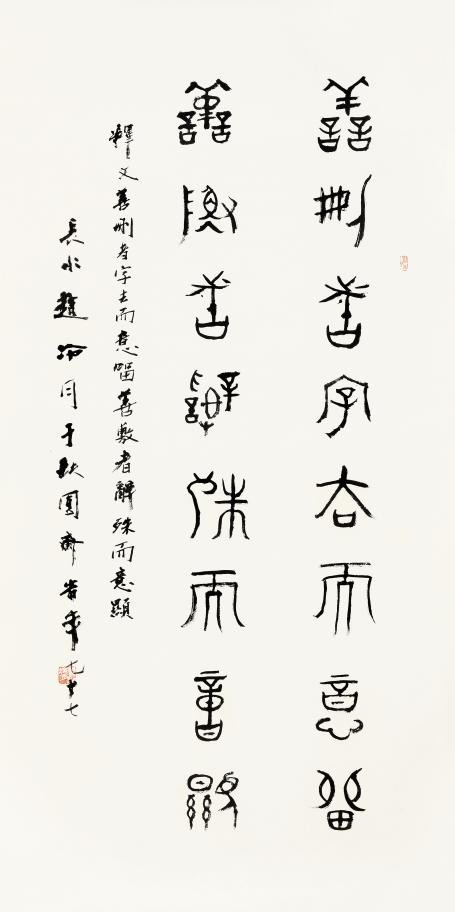 善刪者字去而意留
善敷者辭殊而意顯
釋文善刪者字去而意留善敷者辭殊而意顯
長水趙冷月于缺圓齋旹年七十七